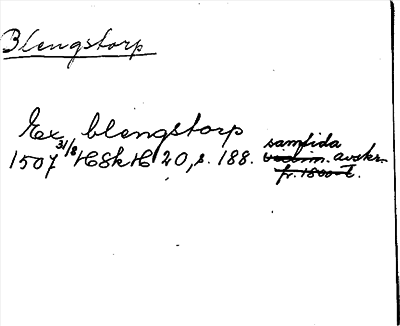 Blengstorp
Ex blengstorp
1507 31/8 HSkH 20, s. 188. samtida avskr.
vidim.
fr. 1800-t.